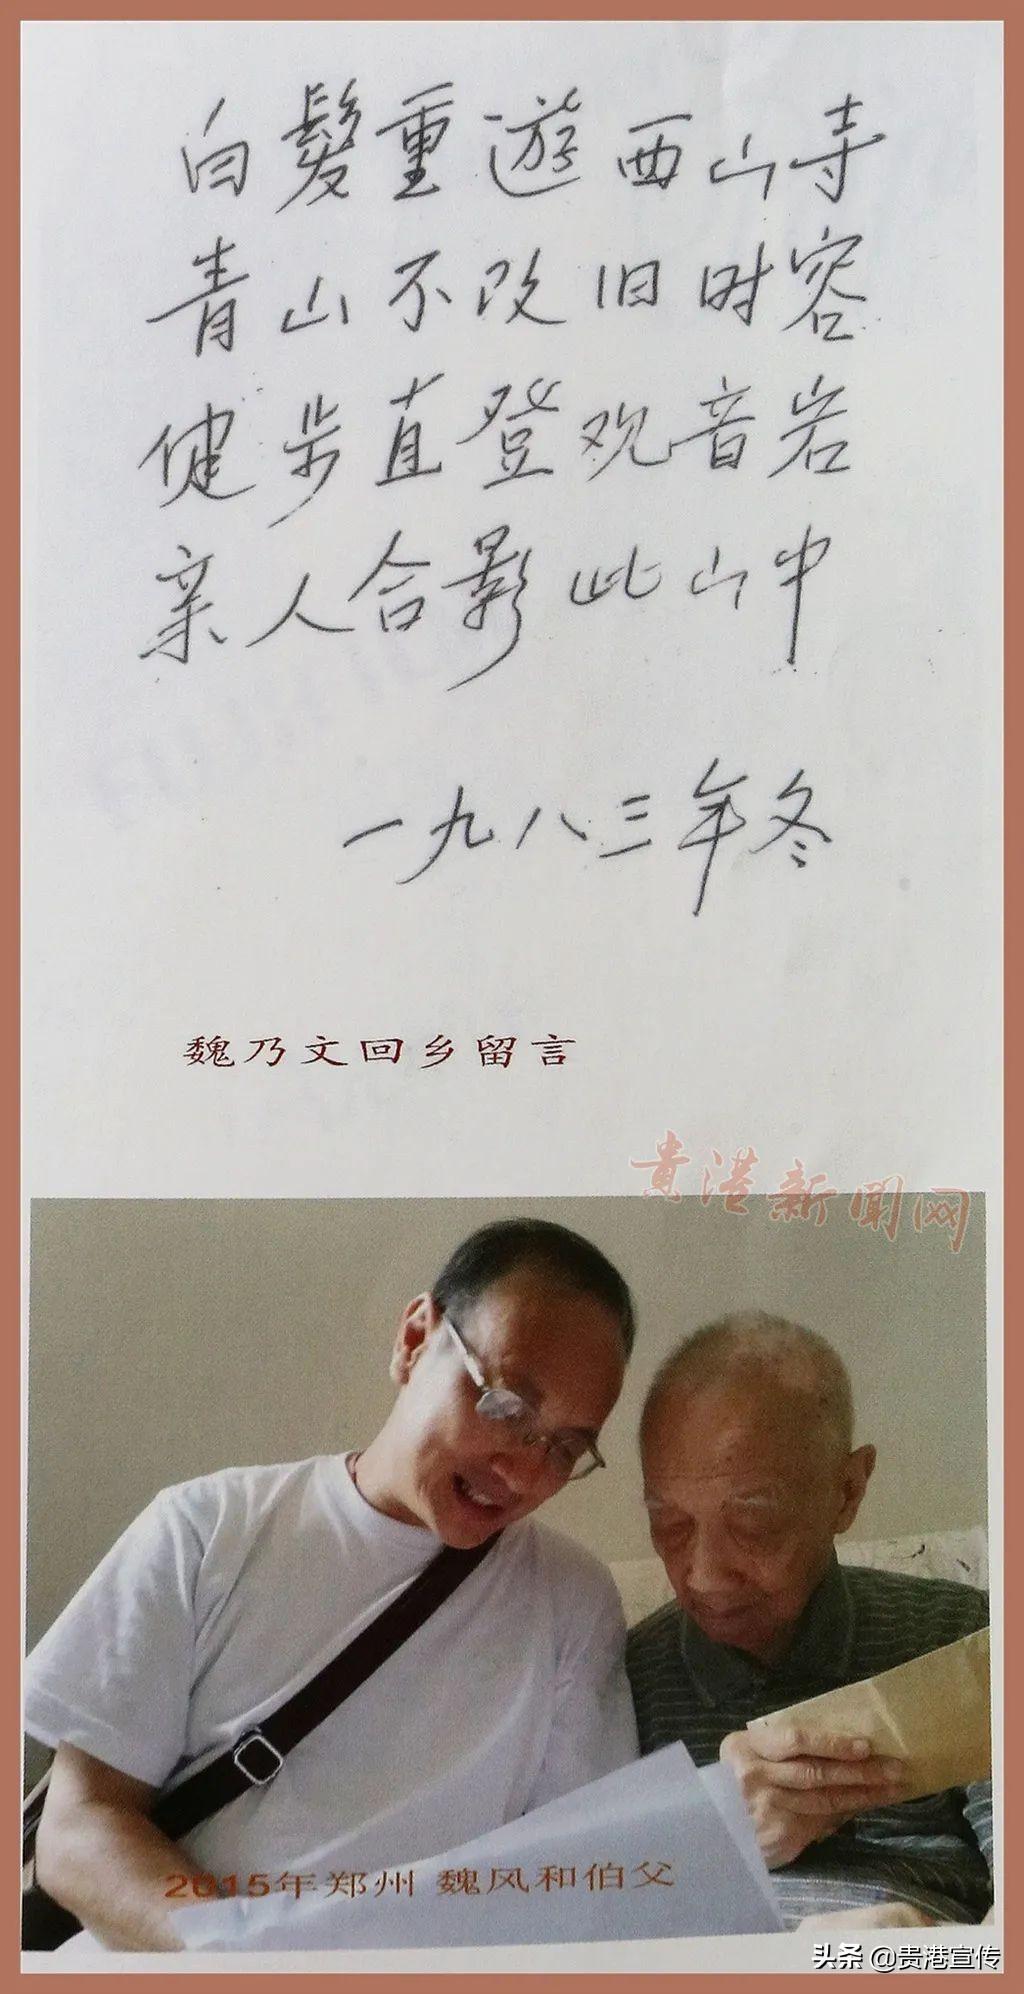 白髮重遊西山寺
青山不改旧时容
健步直登观音岩
亲人合影此山中
一九八三年冬
魏乃文回乡留言
贵港新闻网
2015年郑州 魏风和伯父
头条 @贵港宣传